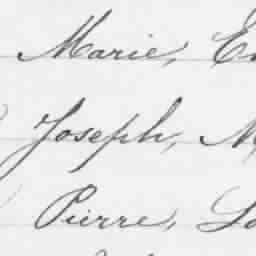 Marie,
Joseph,
Pierre,